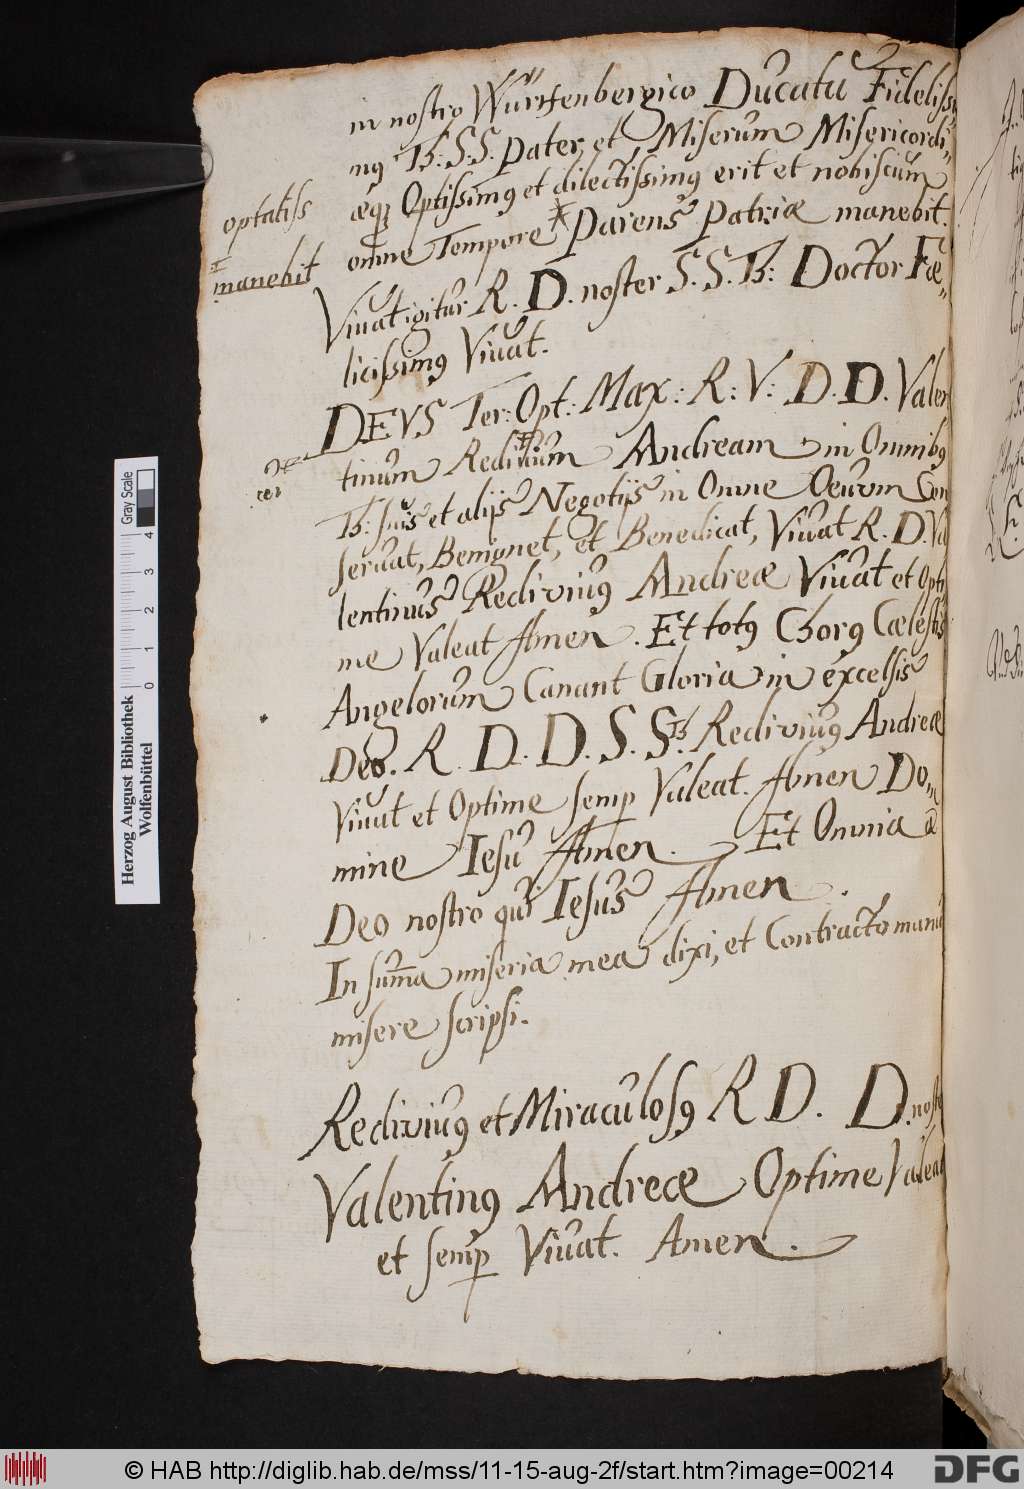 in nostro Würtenbergico Ducatu Fideliss
mꝰ Th: S. S. Pater, et Miserum Misericordi„
æqꝫ Optissimꝰ et dilectissimꝰ erit et nobiscum
optatiss
omne Tempore * Parens Patriæ manebit.
manebit
Vivat igitur R. D. noster S. S. Th: Doctor Fæ„
licissimꝰ Vivat.
DEVS Ter: Opt: Max: R: V: D. D. Valen
tinum Redivium Andream in Omnibꝰ
Th: suis et alijs Negotijs in Omne Oeuum Con
servat, Benignet, et Benedicat, Vivat R. D. Va
lentinus Rediviuꝰ Andreæ Vivat et Opti
me Valeat Amen. Et totꝰ Chorꝰ Cælestis
Angelorum Canant Gloria in excelsis
Deo. R. D. D. S. S. Th. Rediviuꝰ Andreæ
Vivat et Optime semp Valeat. Amen Do„
mine Iesu Amen. Et Omnia a
Deo nostro qui Iesus Amen.
In sum̄a miseria mea dixi, et Contracto manu
misere scripsi.
Rediviuꝰ et Miraculosꝰ R D. D. nost
Valentinꝰ Andreæ Optime Valeat
et semp Vivat. Amen.
Herzog August Bibliothek
Wolfenbüttel
0 1 2 3 4
Gray Scale
© HAB http://diglib.hab.de/mss/11-15-aug-2f/start.htm?image=00214
DFG